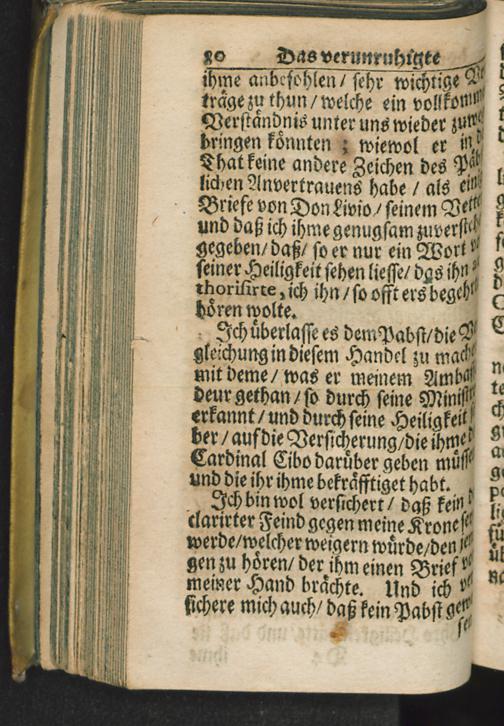 80 Das verunruhigte
ihme anbefohlen / sehr wichtige
träge zu thun / welche ein vollkomm
Verständnis unter uns wieder zuwe
bringen könnten ; wiewol er in
That keine andere Zeichen des Päb
lichen Anvertrauens habe / als eini
Briefe von Don Livio / seinem Vette
und daß ich ihme genugsam zuversteh
gegeben / daß / so er nur ein Wort
seiner Heiligkeit sehen liesse / das ihn
thorisirte, ich ihn / so offt ers begeh
hören wolte.
Ich überlasse es dem Pabst / die
gleichung in diesem Handel zu mach
mit deme / was er meinem Ambas
deur gethan / so durch seine Minist
erkannt / und durch seine Heiligkeit
ber / auf die Versicherung / die ihme
Cardinal Cibo darüber geben müss
und die ihr ihme bekräfftiget habt.
Ich bin wol versichert / daß kein
clarirter Feind gegen meine Krone
werde / welcher weigern würde / den
gen zu hören / der ihm einen Brief
meiner Hand brächte. Und ich
sichere mich auch / daß kein Pabst gew
sen